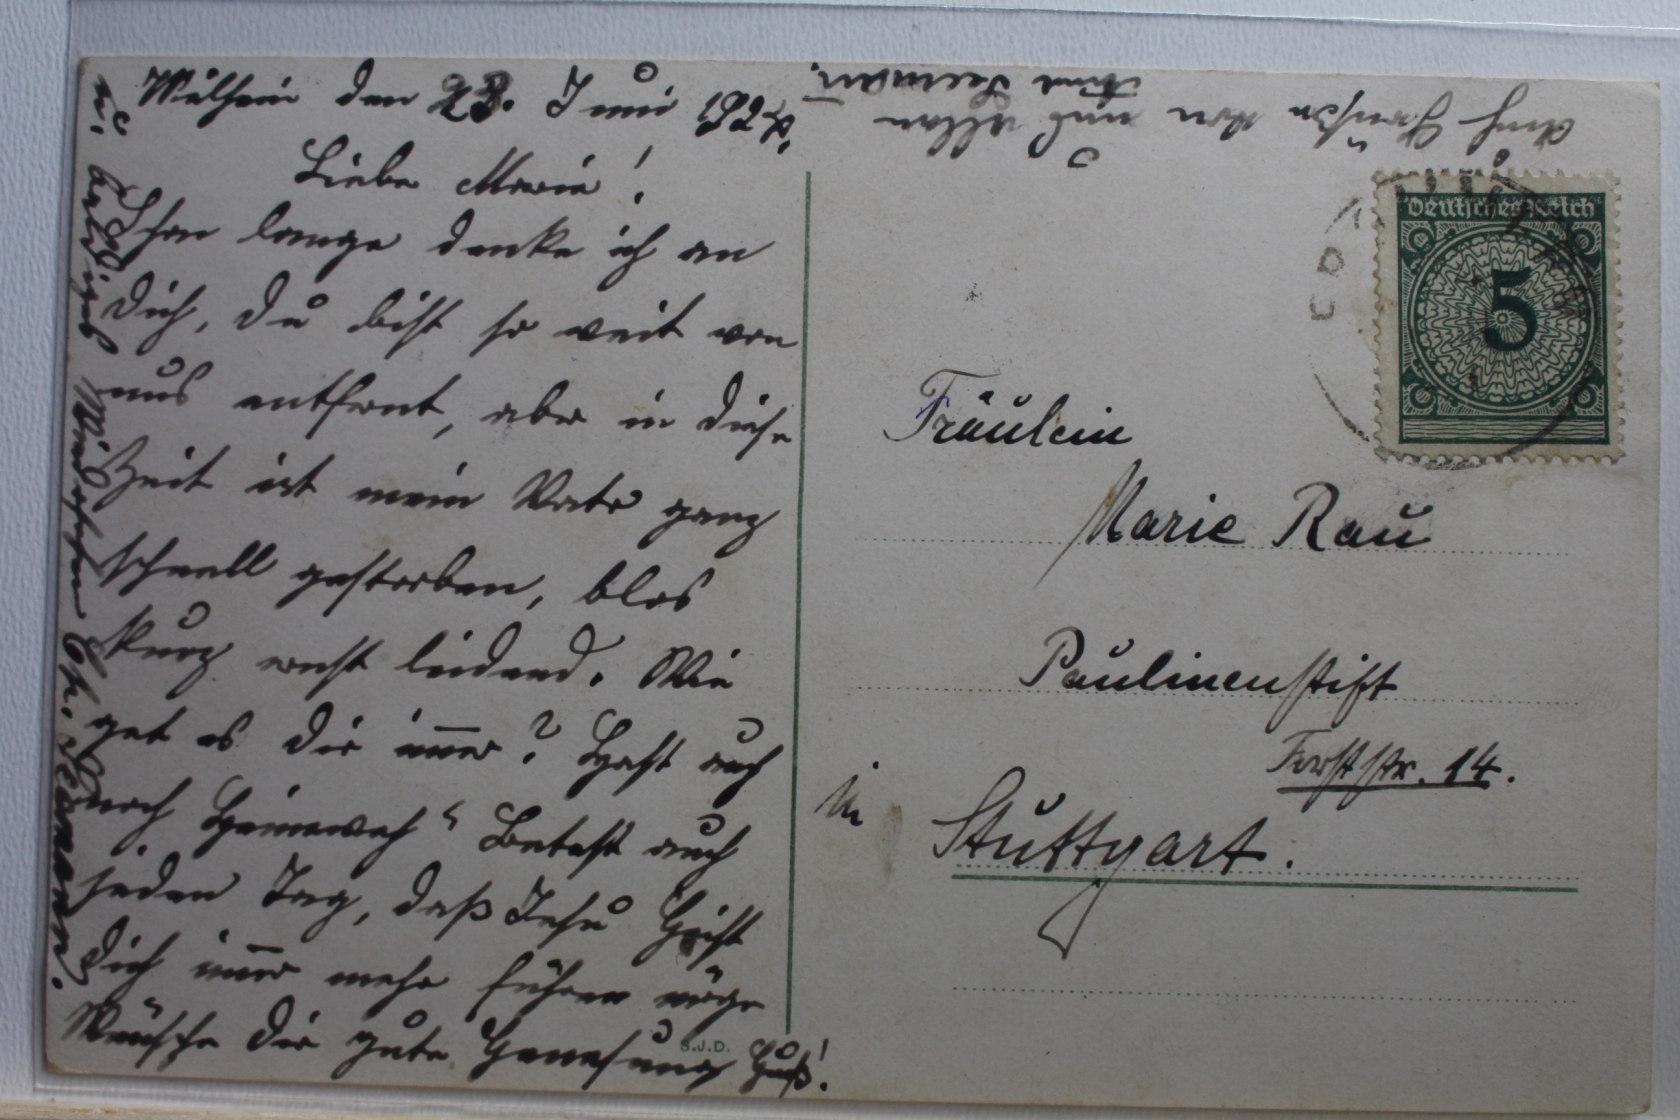 Mülheim den 23. Juni 1924.
Liebe Marie!
Schon lange denke ich an
Dich, Du bist so weit von
uns entfernt, aber in diese
Zeit ist mein Vater ganz
schnell gestorben, blos
kurz recht leidend. Wie
get es Dir immer? Hast auch
noch Heimeweh? Betest auch
jeden Tag, daß Jesu Christ
Dich immer mehr führen möge
Wünsche Dir gute Genesung Gruß!
u. baldiges Wiedersehen
auch Grüße von und allen
Deutsches Reich
5
Fräulein
Marie Rau
Paulinenstift
Forststr. 14.
in Stuttgart.
S.J.D.